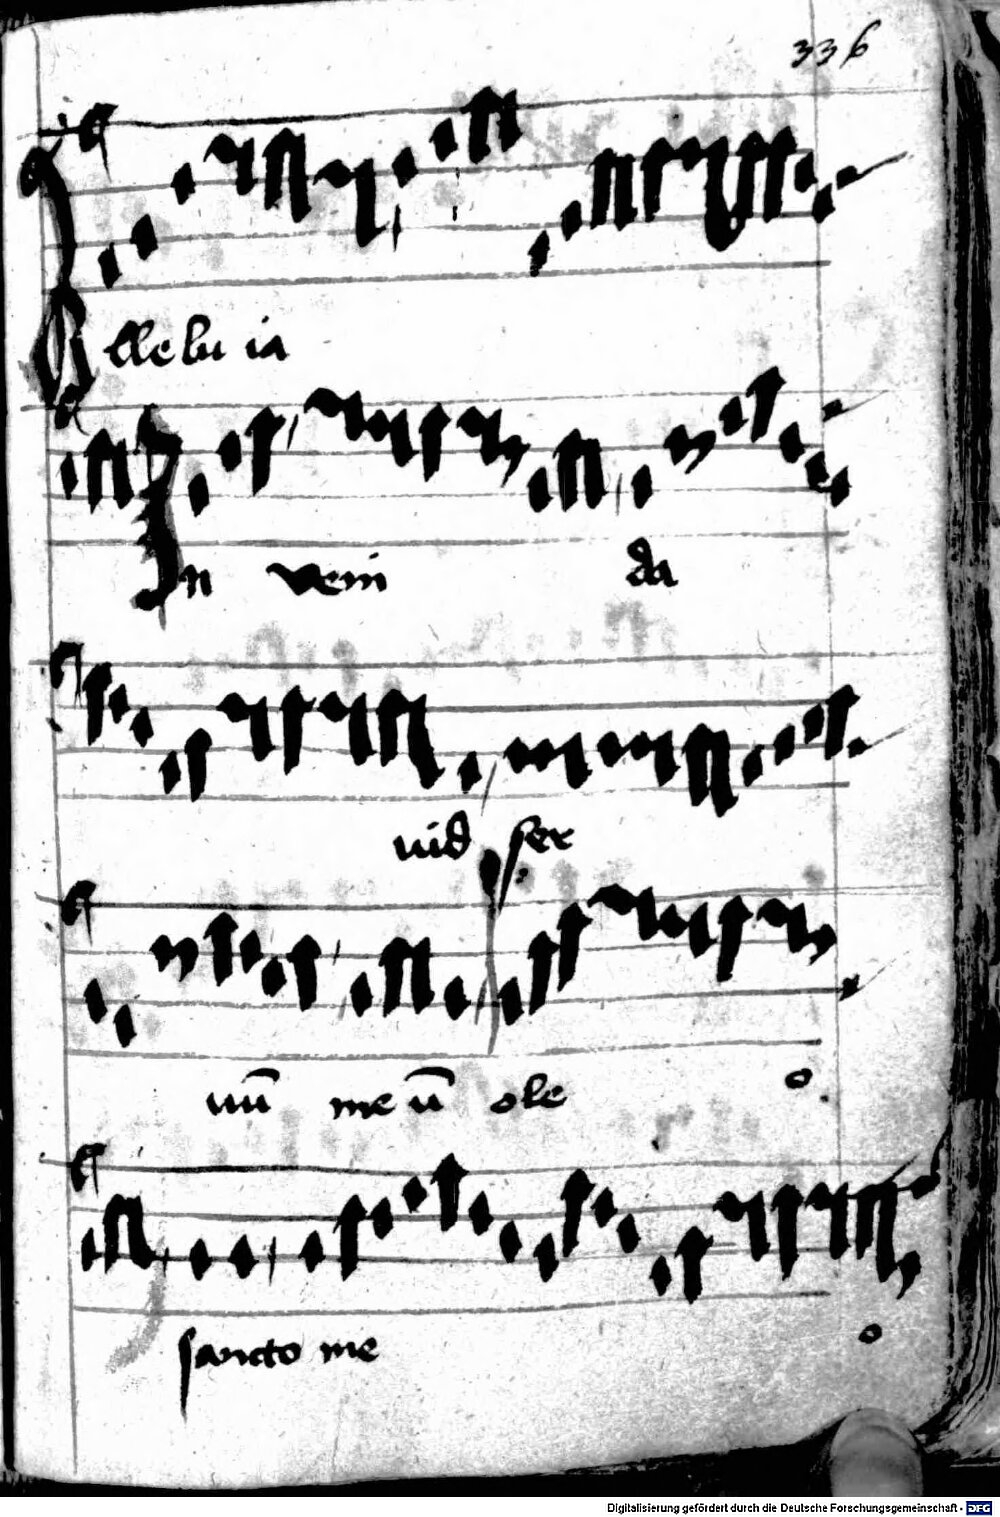 336
Allelu ia
In veni da
uid ser
uū me ū ole o
sancto me o
Digitalisierung gefördert durch die Deutsche Forschungsgemeinschaft - DFG